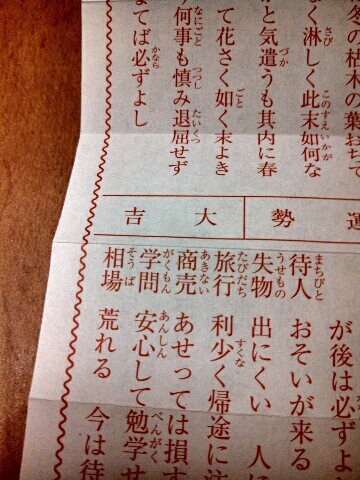 の枯木の葉おちて
く淋しく此末如何な
かと気遣うも其内に春
て花さく如く末よき
何事も慎み退屈せず
まてば必ずよし
運勢 大吉
が後は必ずよ
待人 おそいが来る
失物 出にくい 人に
旅行 利少く帰途に注
商売 あせっては損す
学問 安心して勉学せ
相場 荒れる 今は待